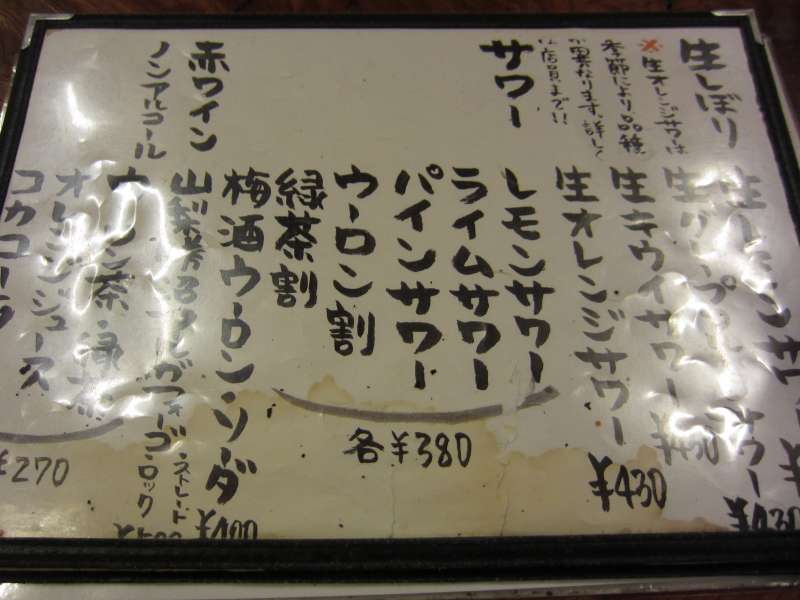 生しぼり
※生オレンジサワーは
季節により品種
が異なります。詳しく
は店員まで!!
サワー
¥430
¥430
生キウイサワー
生オレンジサワー
¥430
レモンサワー
ライムサワー
パインサワー
ウーロン割
緑茶割
各¥380
梅酒ウーロン・ソーダ
¥400
赤ワイン
ストレート
ロック
ノンアルコール
オレンジジュース
コカコーラ
¥270